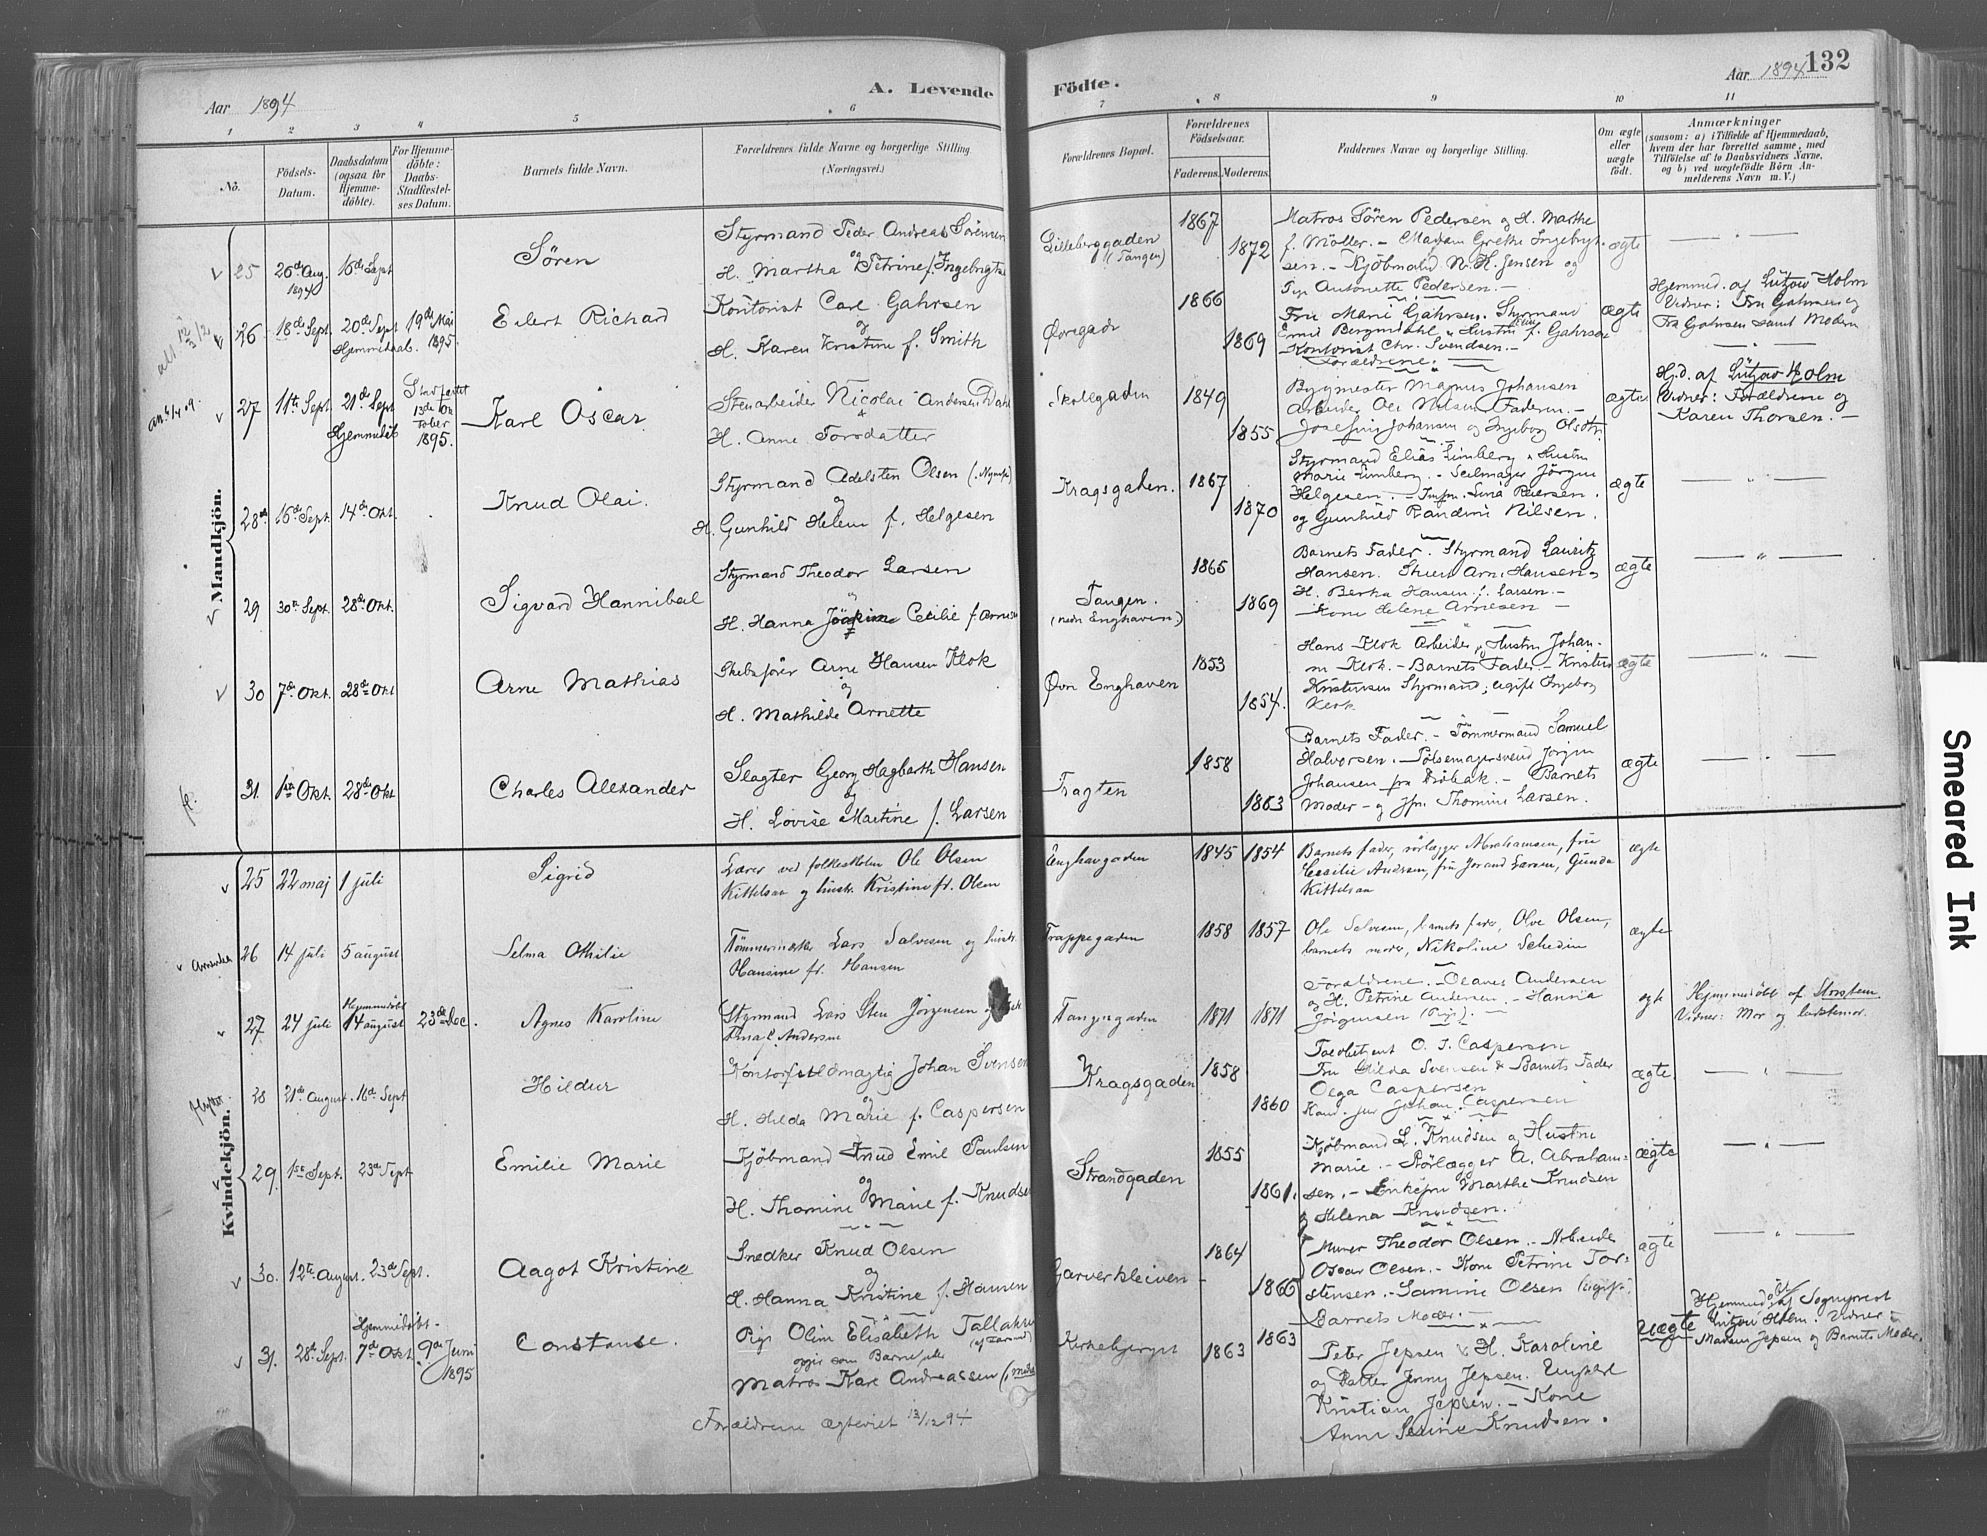 Aar 1894
A. Levende
Fødte.
Aar 1894
132
1 2 3 4 5 6 7 8 9 10 11
No.
Födsels-
Datum.
Daabsdatum
(ogsaa for
Hjemme-
döbte).
For Hjemme-
döbte:
Daabs-
Stadfæstel-
ses Datum.
Barnets fulde Navn.
Forældrenes fulde Navne og borgerlige Stilling
(Næringsvei.)
Forældrenes Bopæl.
Forældrenes
Födselsaar.
Faderens. Moderens.
Faddernes Navne og borgerlige Stilling.
Om ægte
eller
uægte
født.
Anmærkninger
(saasom: a) i Tilfælde af Hjemmedaab,
hvem der har forrettet samme, med
Tilföielse af to Daabsvidners Navne,
og b) ved uægtefödte Börn An-
melderens Navn m. V.)
Mandkjön.
25 26de Aug. 1894 16de Sept
Søren
Styrmand Peder Andreas Sørensen
og
H. Martha Petrine f. Ingebrigts
Lilleberggaden
(Tangen)
1867
1872
Matros Søren Pedersen og H. Marthe
f. Møller. – Madam Grethe Ingebrigt-
sen. – Kjøbmand N. H. Jensen og
Antonette Pedersen. –
ægte
26 18de Sept. 20de Sept Hjemmedaab. 19de Mai 1895.
Eilert Richard
Kontorist Carl Gahrsen
og
H. Karen Kristine f. Smith
Øvregade
1866
1869
Fru Marie Gahrsen. Styrmand
Emil Bergendahl og Hustru f. Gahrsen
Kontorist Chr. Svendsen. –
Forældrene.
ægte
Hjemmed. af Lützow Holm
Vidner: Fru Gahrsen og
Frk Gahrsen samt Modern
27 11te Sept. 21de Sept Hjemmedøbt 13de Oktober 1895.
Karl Oscar
Stenarbeider Nicolai Andersen Dahl
H. Anne Torsdatter
Skolegaden
1849
1855
Bygmester Magnus Johansen
Arbeider Ole Nilsen Faderen. –
Josefine Johansen og Ingeborg Olsdtr.
ægte
Hjd. af Lützow Holm
Vidner: Forældrene og
Karen Thorsen. –
28de 16de Sept. 14de Okt.
Knud Olai.
Styrmand Adelsten Olsen
og
H. Gunhild Helene f. Helgesen
Kragsgaden.
1867
1870
Styrmand Elias Limberg og Hustru
Marie Limberg. – Seilmager Jörgen
Helgesen. – Jomfr. Lina Reiersen.
og Gunhild Randine Nilsen.
ægte
29 30te Sept. 28de Okt.
Sigvard Hannibal
Styrmand Theodor Larsen
og
H. Hanna Cecilie f. Arnesen
Tangen.
(nedre Enghaven.)
1865
1869
Barnets Fader. Styrmand Lauritz
Hansen. Stuert Arn. Hansen og
H. Berta Hansen f. Larsen. –
Kone Helene Arnesen –
ægte
30 7de Okt. 28de Okt
Arne Mathias
Skibsfører Arne Hansen Klok
og
H. Mathilde Arnette
Øvre Enghaven
1853
1854.
Hans Klok Arbeider og Hustru Johan-
ne Klok. – Barnets Fader. – Kristen
Kristensen Styrmand, ugift Ingeborg
Klok
ægte
31. 1ste Okt. 28de Okt
Charles Alexander
Slagter Georg Hagbarth Hansen
og
H. Lovise Martine f. Larsen
Tragten
1858
1863
Barnets Fader. – Tömmermand Samuel
Halvorsen. – Pølsemagersvend Jörgen
Johansen fra Drøbak. – Barnets
Moder – og Jfr. Thomine Larsen.
ægte
Kvindekjön.
25 22 maj 1 juli
Sigrid
Lærer ved folkeskolen Ole Olsen
Kittelsaa og hustr. Kristine fr. Olsen
Enghavgaden
1845 1854
Barnets fader, rörlægger Abrahamsen, fru
Cecilie Andersen, fru Jorand Larsen, Gunda
Kittelsaa
ægte
26 14 juli 5 august
Selma Othilie
Tömmermand Lars Salvesen og hustr.
Hansine fr. Hansen
Trappegaden
1858 1857
Ole Salvesen, barnets fader, Olve Olsen,
barnets moder, Nikoline Schedin
ægte
27 24 juli Hjemmedøbt 14 august 23de Dec.
Agnes Karoline
Styrmand Lars Sten Jörgensen og
Andersen
Tangengaden
1871 1871
Forældrene. – Olaves Andersen
og H. Petrine Andersen. – Hanna
Jörgensen (Pige). –
ægte
Hjemmedøbt af Storstein.
Vidner: Mor og bedstemor.
28 21de August. 16de Sept
Hildur
Kontorfuldmægtig Johan Svensen
og
H. Hilda Marie f. Caspersen
Kragsgaden
1858
1860
Toldbetjent O. J. Caspersen
Fru Hilda Svensen & Barnets Fader
Olga Caspersen
Kand. jur Johan Caspersen
ægte.
29. 1ste Sept. 23de Sept
Emilie Marie
Kjøbmand Knud Emil Paulsen
og
H. Thomine Marie f. Knudsen
Strandgaden
1855
1861.
Kjøbmand L. Knudsen og Hustru
Marie. – Rörlægger A. Abraham-
sen. – Enkefru Marthe Knudsen
og Helena Knudsen.
ægte
30. 12te August. 23de Sept.
Aagot Kristine
Snedker Knud Olsen
og
H. Hanna Kristine f. Hansen
Garverkleiven
1864
1866
Murer Theodor Olsen. – Arbeider
Oscar Olsen. – Kone Petrine Tor-
stensen. – Samine Olsen (ugift)
Barnets Moder. –
ægte
31. 28de Sept. Hjemmedøbt 7de Okt. 9de Juni 1895
Constanse.
Pige Oline Elisabeth Tallaksen
opgir som Barnefader
Matros Karl Andreassen
Forældrene ægteviet 13/12 94
Kirkebjerget
1863 1863
Peter Jepsen & H. Karoline
og Datter Jenny Jepsen. Ungkarl
Kristian Jepsen. – Kone
Anne Serine Knudsen.
Uægte
Hjemmedøbt af Sogneprest
Lützow Holm. Vidner:
Madam Jepsen og Barnets Moder.
Smeared Ink